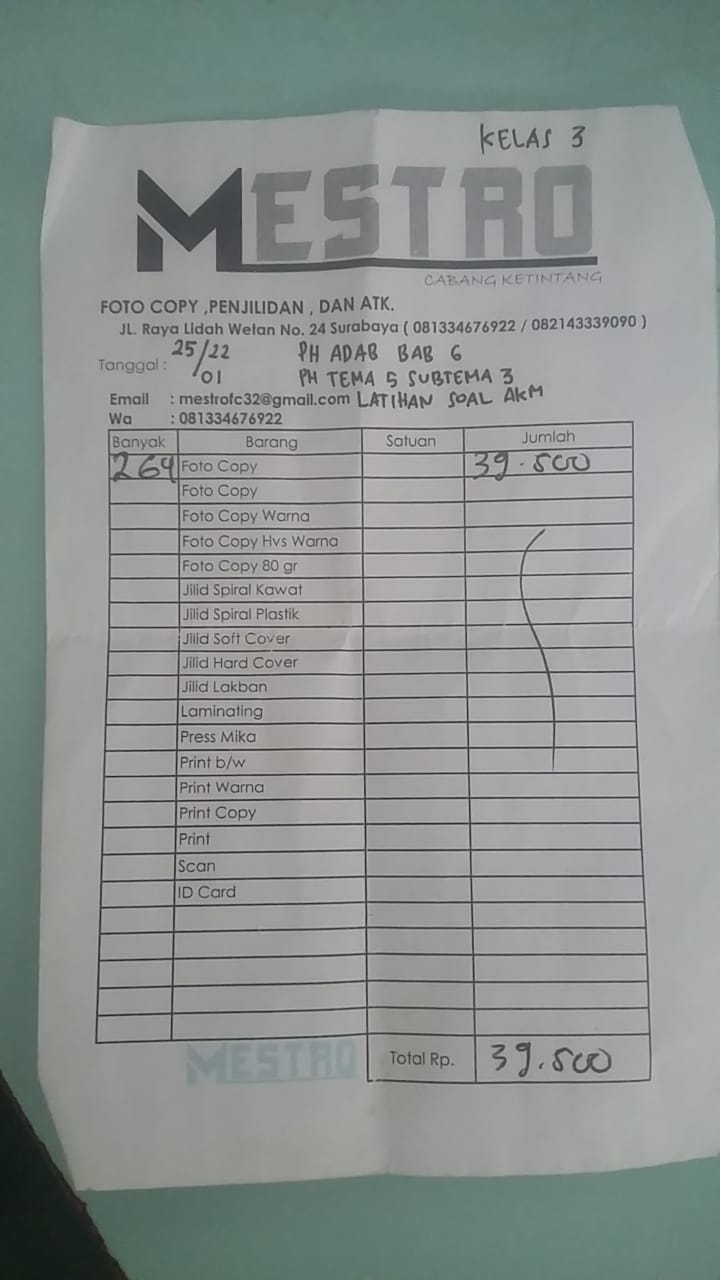 KELAS 3
MESTRO
CABANG KETINTANG
FOTO COPY ,PENJILIDAN , DAN ATK.
JL. Raya Lidah Wetan No. 24 Surabaya ( 081334676922 / 082143339090 )
Tanggal : 25/01/22 PH ADAB BAB 6
PH TEMA 5 SUBTEMA 3
Email : mestrofc32@gmail.com LATIHAN SOAL AKM
Wa : 081334676922
Banyak Barang Satuan Jumlah
264 Foto Copy 39.500
Foto Copy
Foto Copy Warna
Foto Copy Hvs Warna
Foto Copy 80 gr
Jilid Spiral Kawat
Jilid Spiral Plastik
Jilid Soft Cover
Jilid Hard Cover
Jilid Lakban
Laminating
Press Mika
Print b/w
Print Warna
Print Copy
Print
Scan
ID Card
MESTRO Total Rp. 39.500